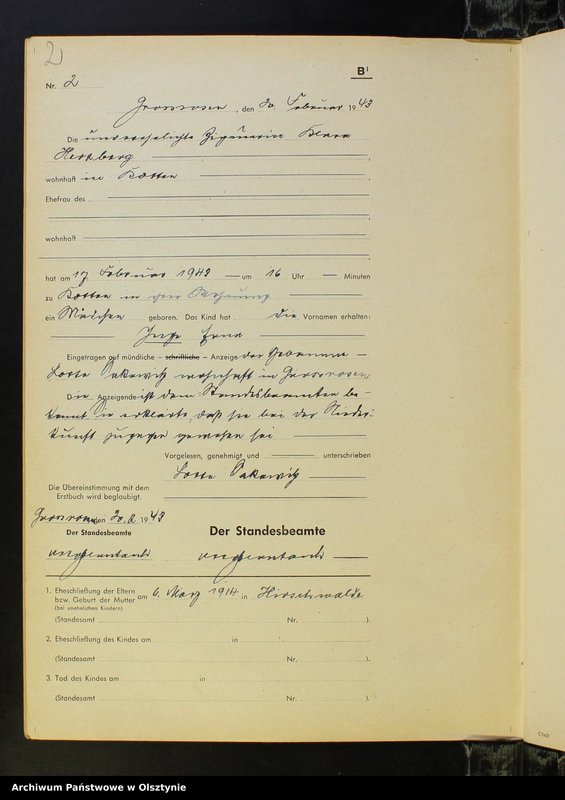 2
B¹
Nr. 2
Grossrosen, den 20. Februar 1943
Die unverehelichte Zigeunerin Klara
Herzberg
wohnhaft in Kotten
Ehefrau des
wohnhaft
hat am 17. Februar 1943 um 16 Uhr Minuten
zu Kotten in der Wohnung
ein Mädchen geboren. Das Kind hat die Vornamen erhalten:
Inge Erna
Eingetragen auf mündliche – schriftliche – Anzeige der Hebamme
Lotte wohnhaft in Grossrosen
Die Anzeigende ist dem Standesbeamten be-
kannt. Sie erklärte, daß sie bei der Nieder-
kunft zugegen gewesen sei
Vorgelesen, genehmigt und unterschrieben
Lotte
Die Übereinstimmung mit dem
Erstbuch wird beglaubigt.
Grossrosen, den 20.2. 1943
Der Standesbeamte
Der Standesbeamte
1. Eheschließung der Eltern
bzw. Geburt der Mutter am 6. März 1914 in
(bei unehelichen Kindern)
(Standesamt Nr. ).
2. Eheschließung des Kindes am in
(Standesamt Nr. ).
3. Tod des Kindes am in
(Standesamt Nr. ).
Archiwum Państwowe w Olsztynie